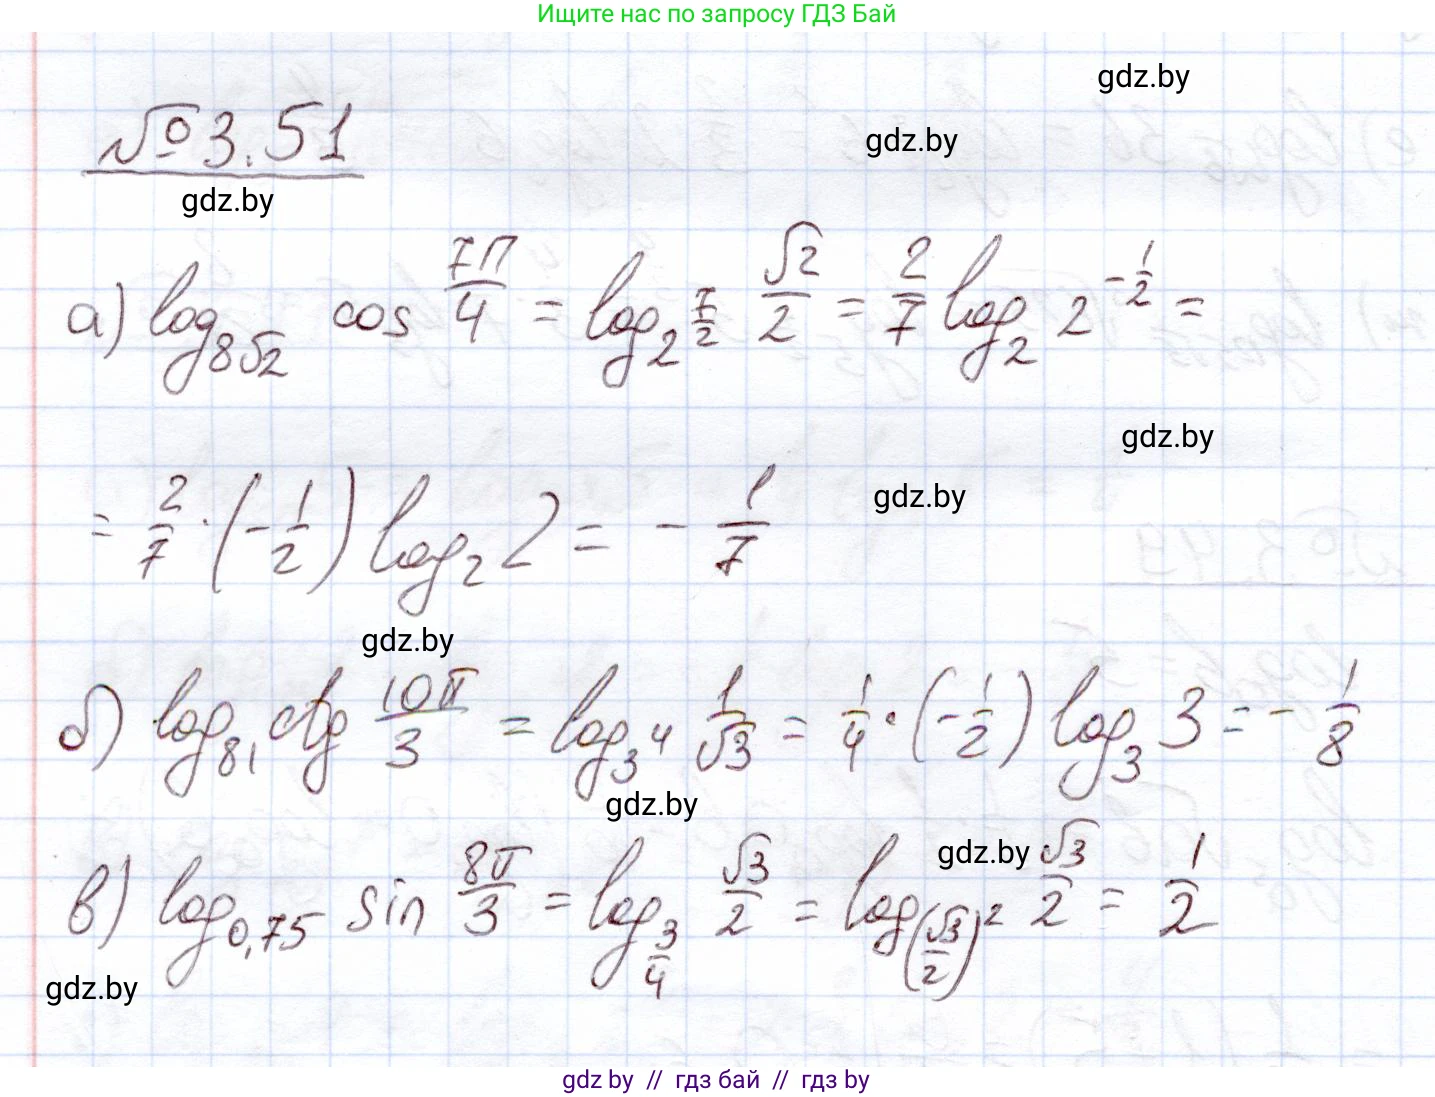 Ищите нас по запросу ГДЗ Бай
gdz.by
№ 3.51
gdz.by
gdz.by
а) log_{8√2} cos 7П/4 = log_{2^{7/2}} √2/2 = 2/7 log_2 2^{-1/2} =
gdz.by
= 2/7 · (-1/2) log_2 2 = - 1/7
gdz.by
gdz.by
б) log_{81} ctg 10π/3 = log_{3^4} 1/√3 = 1/4 · (-1/2) log_3 3 = - 1/8
gdz.by
gdz.by
в) log_{0,75} sin 8π/3 = log_{3/4} √3/2 = log_{(√3/2)^2} √3/2 = 1/2
gdz.by
gdz by // гдз бай // гдз by